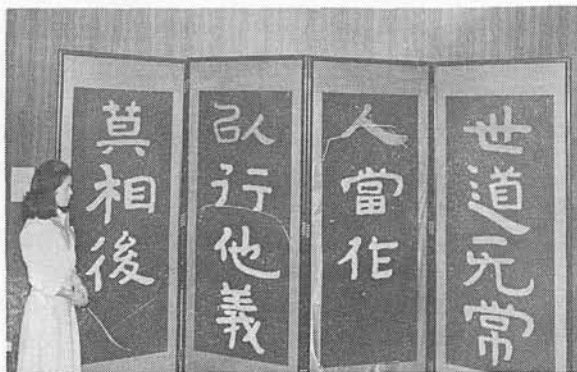 世道无常
人當作
以行他義
莫相後